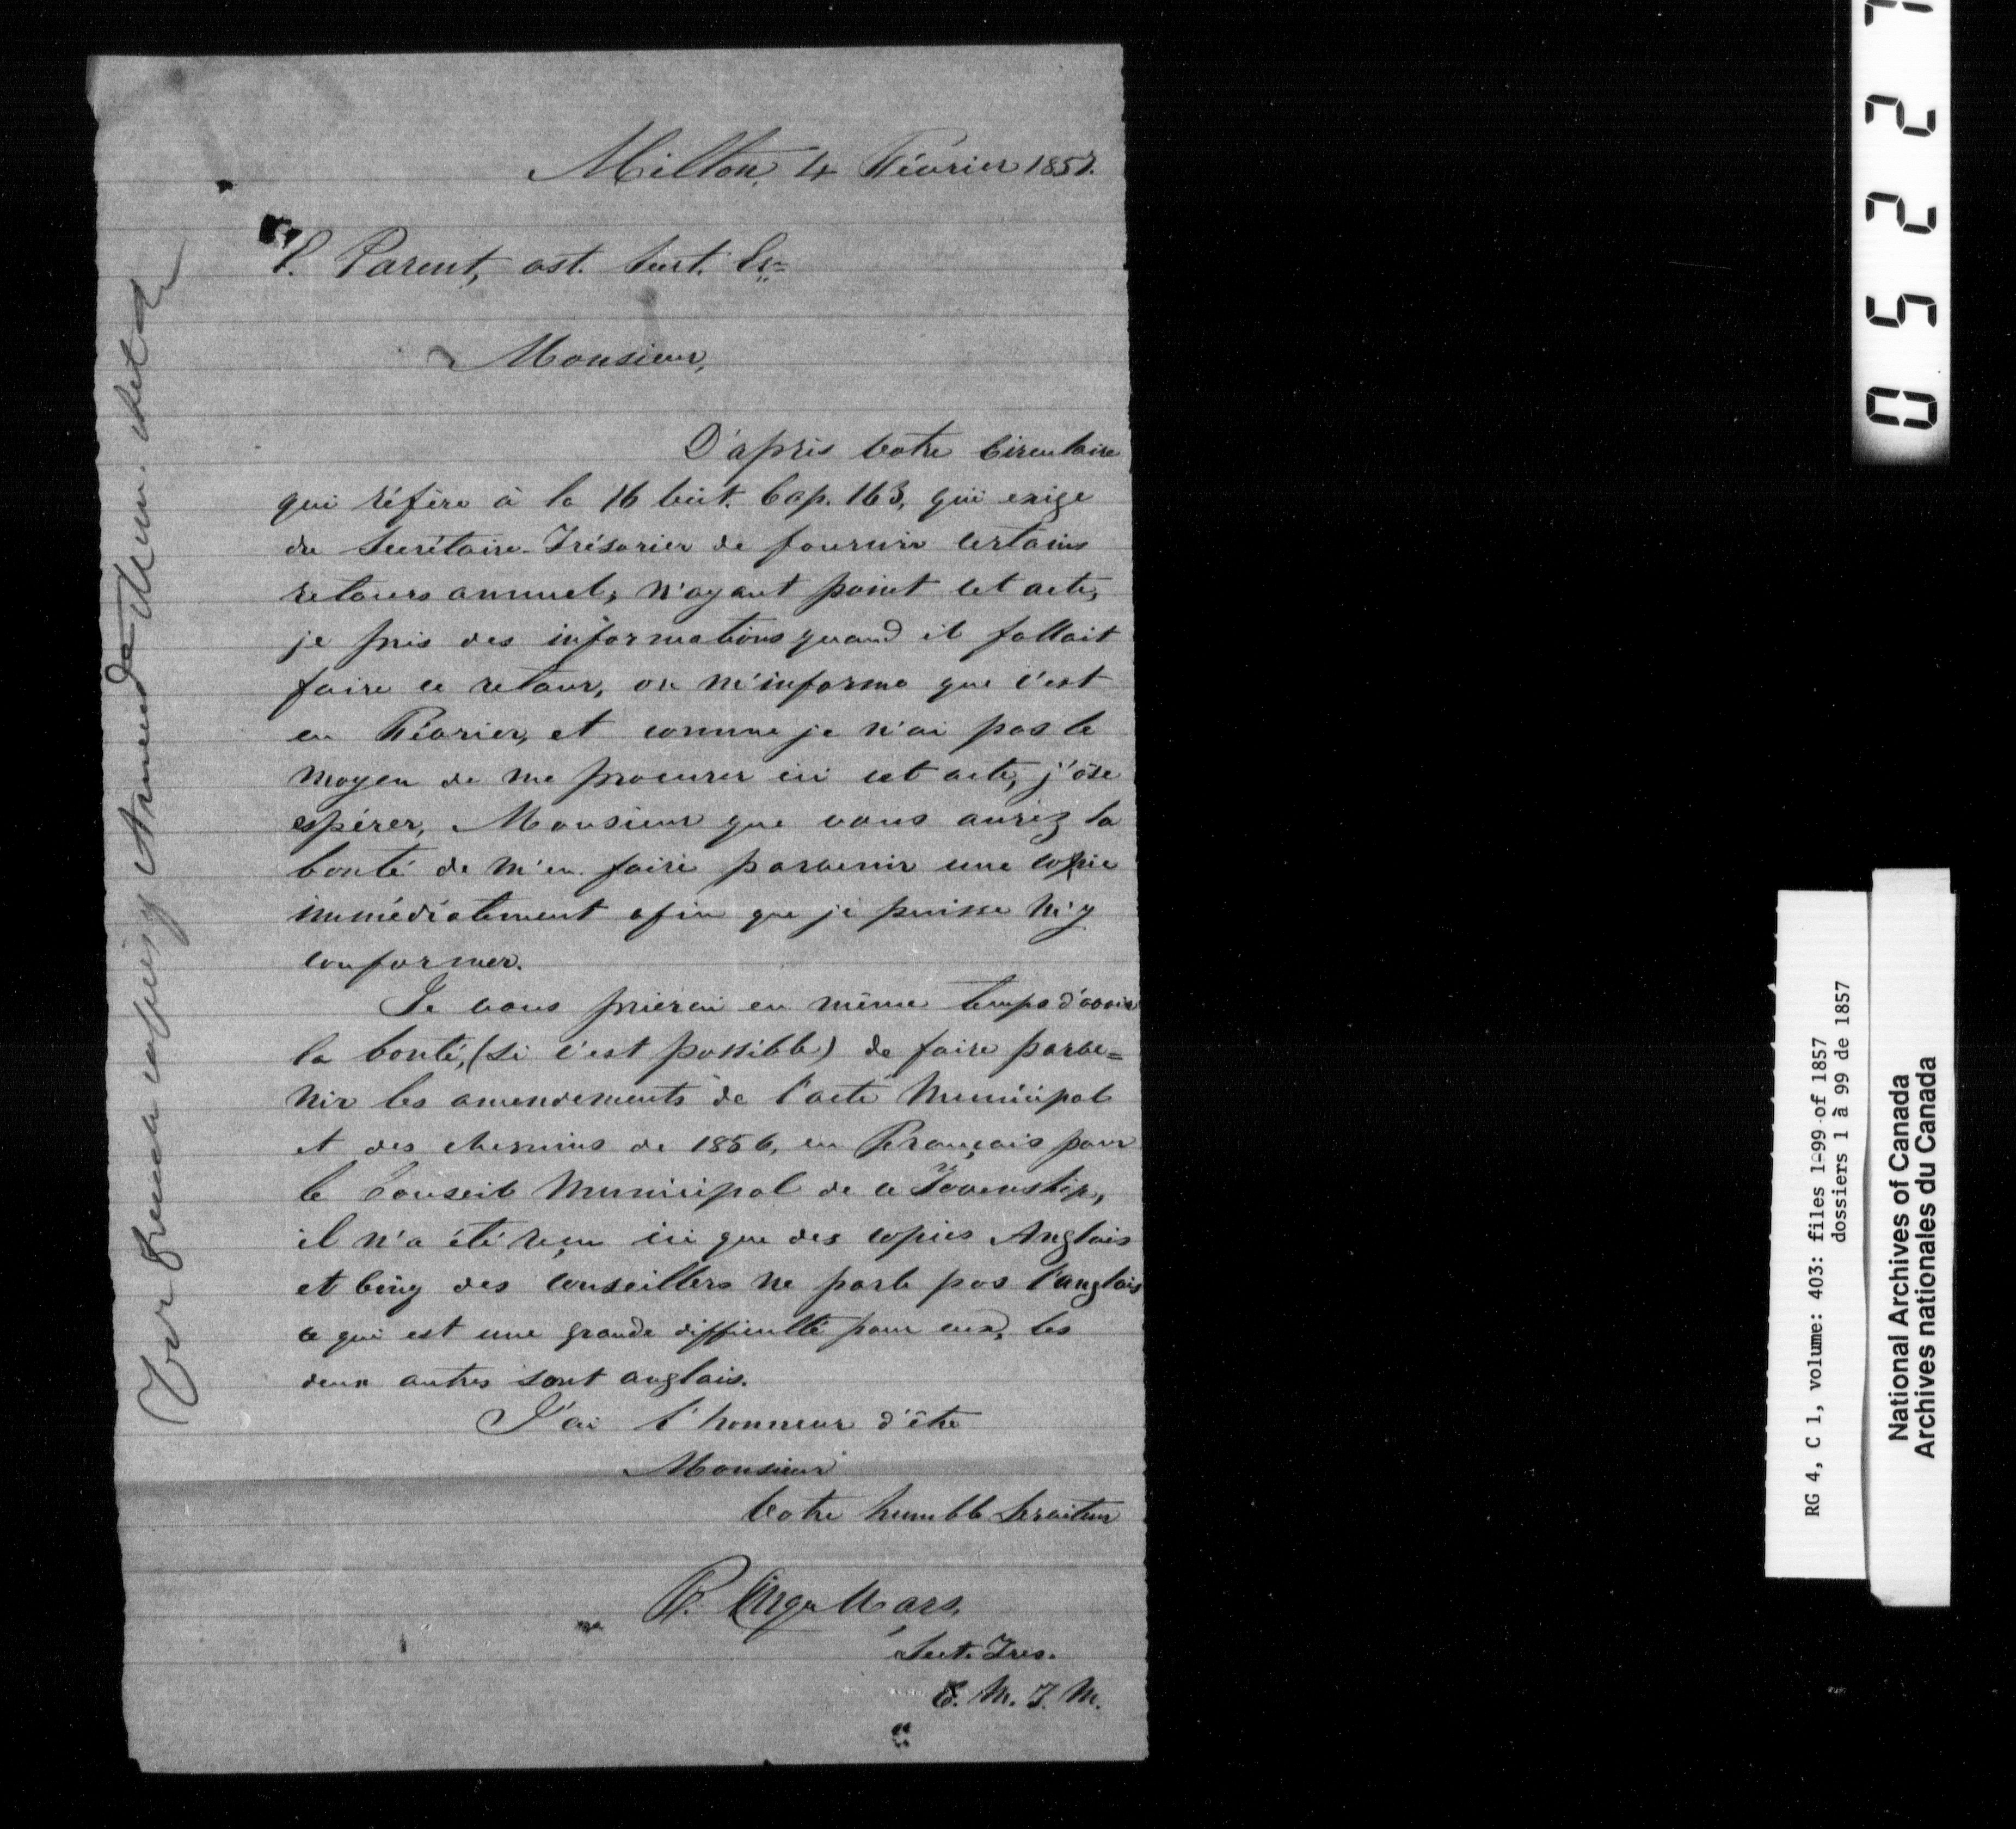 Milton, 4 Février 1857.
E. Parent, ast. Sect. Er.
Monsieur,
D'après votre Circulaire
qui réfère à la 16 Vict. Cap. 163, qui exige
du Secrétaire-Trésorier de fournir certains
retours annuel, n'ayant point cet acte,
je pris des informations quand il fallait
faire ce retour, on m'informa que c'est
en Février, et comme je n'ai pas le
moyen de me procurer ici cet acte, j'ôse
espérer, Monsieur que vous aurez la
bonté de m'en faire parvenir une copie
immédiatement afin que je puisse m'y
conformer.
Je vous prierai en même temps d'avoir
la bonté, (si c'est possible) de faire parve=
nir les amendements de l'acte Municipal
et des chemins de 1856, en Français pour
le Conseil Municipal de ce Township,
il n'a été reçu ici que des copies Anglais
et cinq des Conseillers ne parle pas l'anglais
ce qui est une grande difficulté pour eux, les
deux autres sont anglais.
J'ai l'honneur d'être
Monsieur
Votre humble Serviteur
Sect. Tres.
C. M. T. M.
French copies Amend Mun.
0 5 2 2 7
RG 4, C 1, volume: 403: files 1-99 of 1857
dossiers 1 à 99 de 1857
National Archives of Canada
Archives nationales du Canada